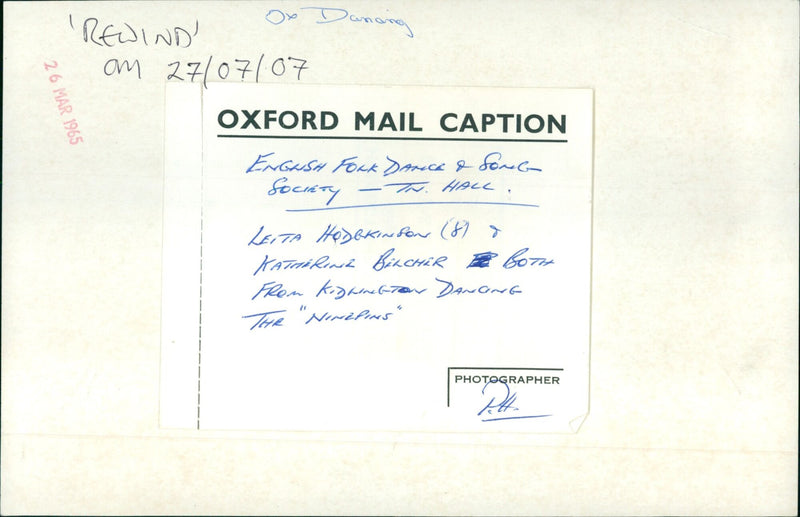 Ox Dancing
'REWIND'
ON 27/07/07
26 MAR 1965
OXFORD MAIL CAPTION
ENGLISH FOLK DANCE & SONG
SOCIETY — TN. HALL.
LEITA HODGKINSON (8) &
KATHERINE BELCHER BOTH
FROM KIDLINGTON DANCING
THE "NINEPINS"
PHOTOGRAPHER
P.H.